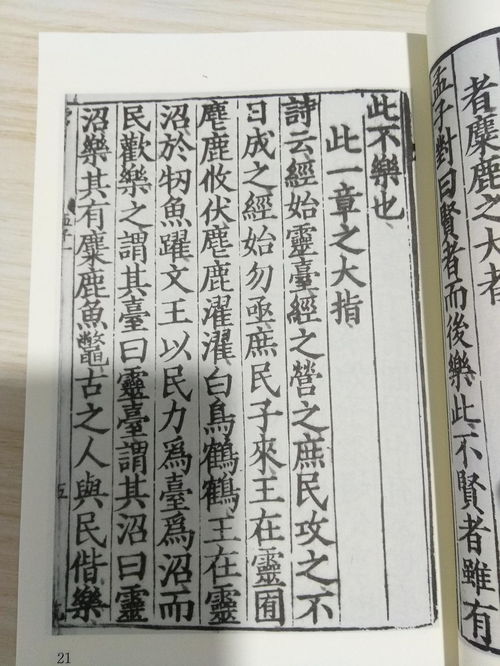 者麋鹿之大者
孟子對曰賢者而後樂此不賢者雖有
此不樂也
此一章之大指
詩云經始靈臺經之營之庶民攻之不
日成之經始勿亟庶民子來王在靈囿
麀鹿攸伏麀鹿濯濯白鳥鶴鶴王在靈
沼於牣魚躍文王以民力爲臺爲沼而
民歡樂之謂其臺曰靈臺謂其沼曰靈
沼樂其有麋鹿魚鼈古之人與民偕樂
孟子
五
21